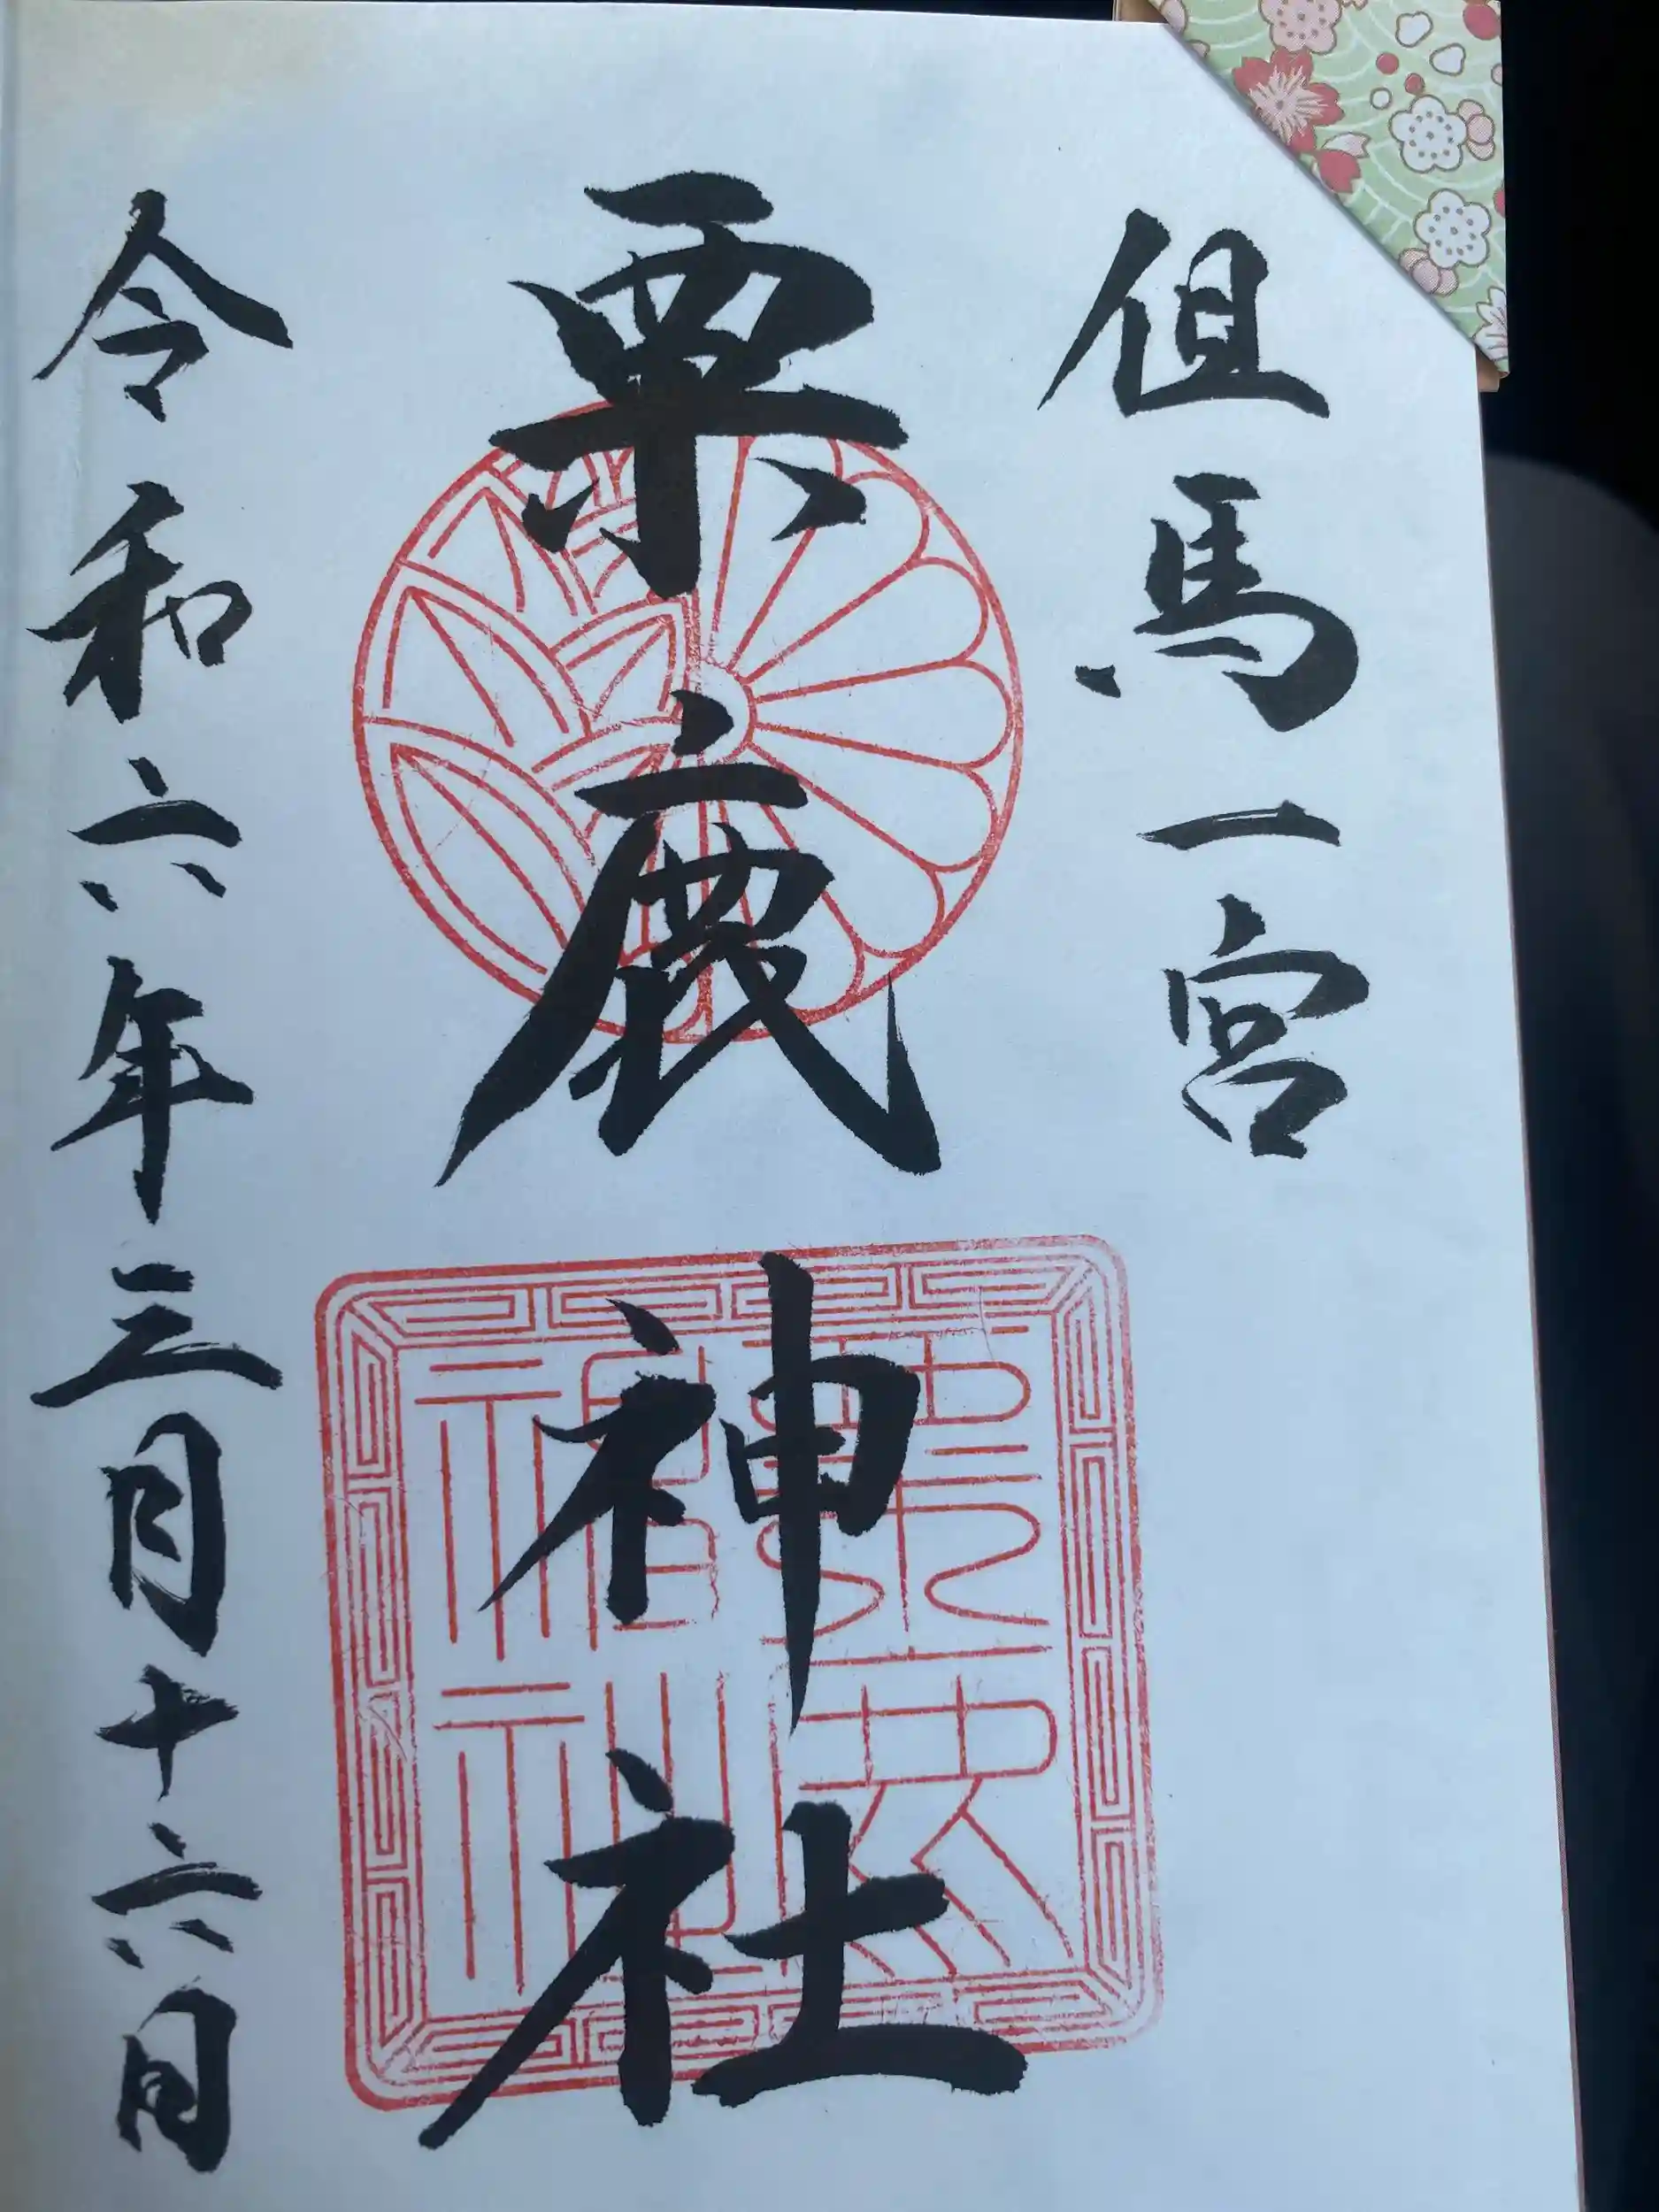 但馬一宮
粟鹿神社
粟鹿
神社
令和六年三月十六日